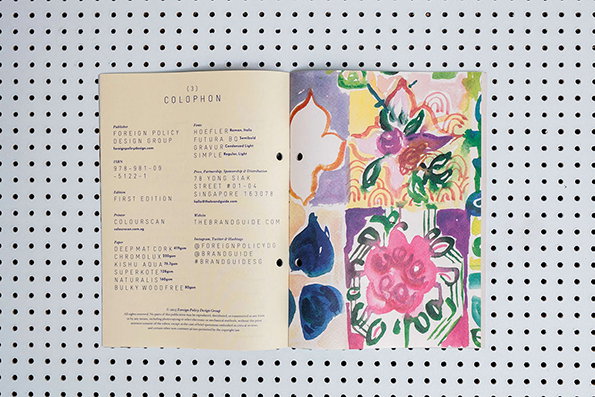 (3)
COLOPHON
Publisher
FOREIGN POLICY
DESIGN GROUP
foreignpolicydesign.com
ISBN
978-981-09
-5122-1
Edition
FIRST EDITION
Printer
COLOURSCAN
colourscan.com.sg
Paper
DEEP MAT CORK
CHROMOLUX
KISHU AQUA
SUPERKOTE
NATURALIS
BULKY WOODFREE
Fonts
HOEFLER Roman, Italic
FUTURA BQ Semibold
GRAVUR Condensed Light
SIMPLE Regular, Light
Press, Partnership, Sponsorship & Distribution
78 YONG SIAK
STREET #01-04
SINGAPORE 163078
hello@thebrandguide.com
Website
THEBRANDGUIDE.COM
Instagram, Twitter & Hashtags
@FOREIGNPOLICYDG
@BRANDGUIDE
#BRANDGUIDESG
Foreign Policy Design Group